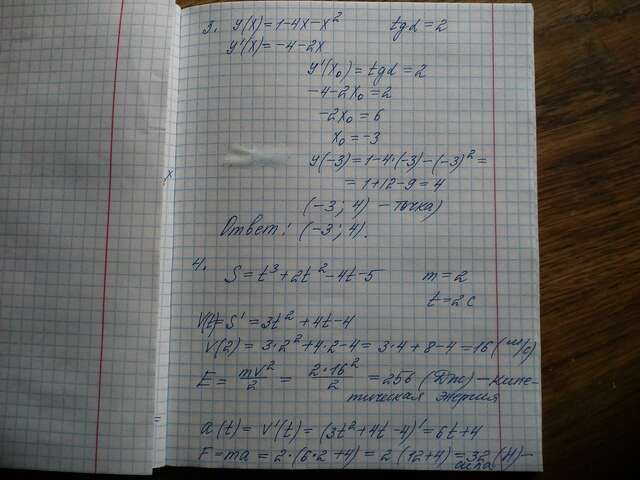 3. y(x)=1-4x-x² tgα=2
y'(x)=-4-2x
y'(x₀)=tgα=2
-4-2x₀=2
-2x₀=6
x₀=-3
y(-3)=1-4·(-3)-(-3)²=
=1+12-9=4
(-3; 4) - точка)
Ответ: (-3; 4).
4.
S=t³+2t²-4t-5 m=2
t=2c
V(t)=S'=3t²+4t-4
V(2)=3·2²+4·2-4=3·4+8-4=16 (м/с)
E=mv²/2=2·16²/2=256 (Дж)-кине-
тическая энергия
a(t)=v'(t)=(3t²+4t-4)'=6t+4
F=ma=2·(6·2+4)=2(12+4)=32 (Н)-
сила
x
=